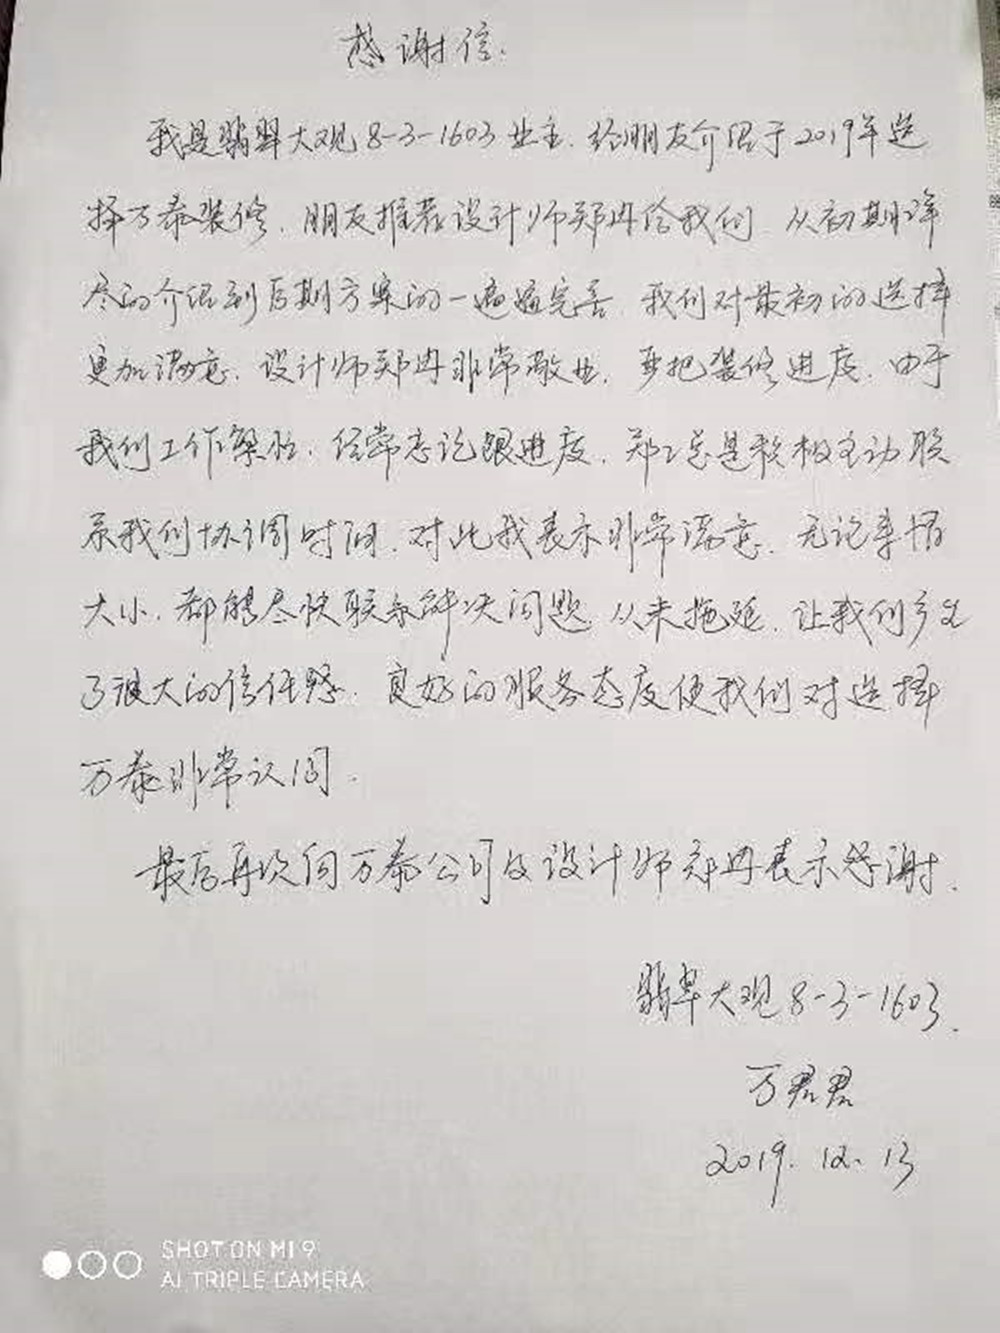 感谢信.
我是翡翠大观8-3-1603业主.经朋友介绍于2019年选
择万泰装修.朋友推荐设计师郑丹给我们 从初期详
尽的介绍到后期方案的一遍遍完善.我们对最初的选择
更加满意.设计师郑丹非常敬业.严把装修进度.由于
我们工作繁忙.经常忘记跟进度.郑工总是积极主动联
系我们协调时间.对此我表示非常满意.无论事情
大小.都能尽快联系解决问题 从未拖延.让我们产生
了很大的信任感.良好的服务态度使我们对选择
万泰非常认同.
最后再次向万泰公司及设计师郑丹表示感谢.
翡翠大观8-3-1603.
万君君
2019.12.13
SHOT ON MI 9
AI TRIPLE CAMERA